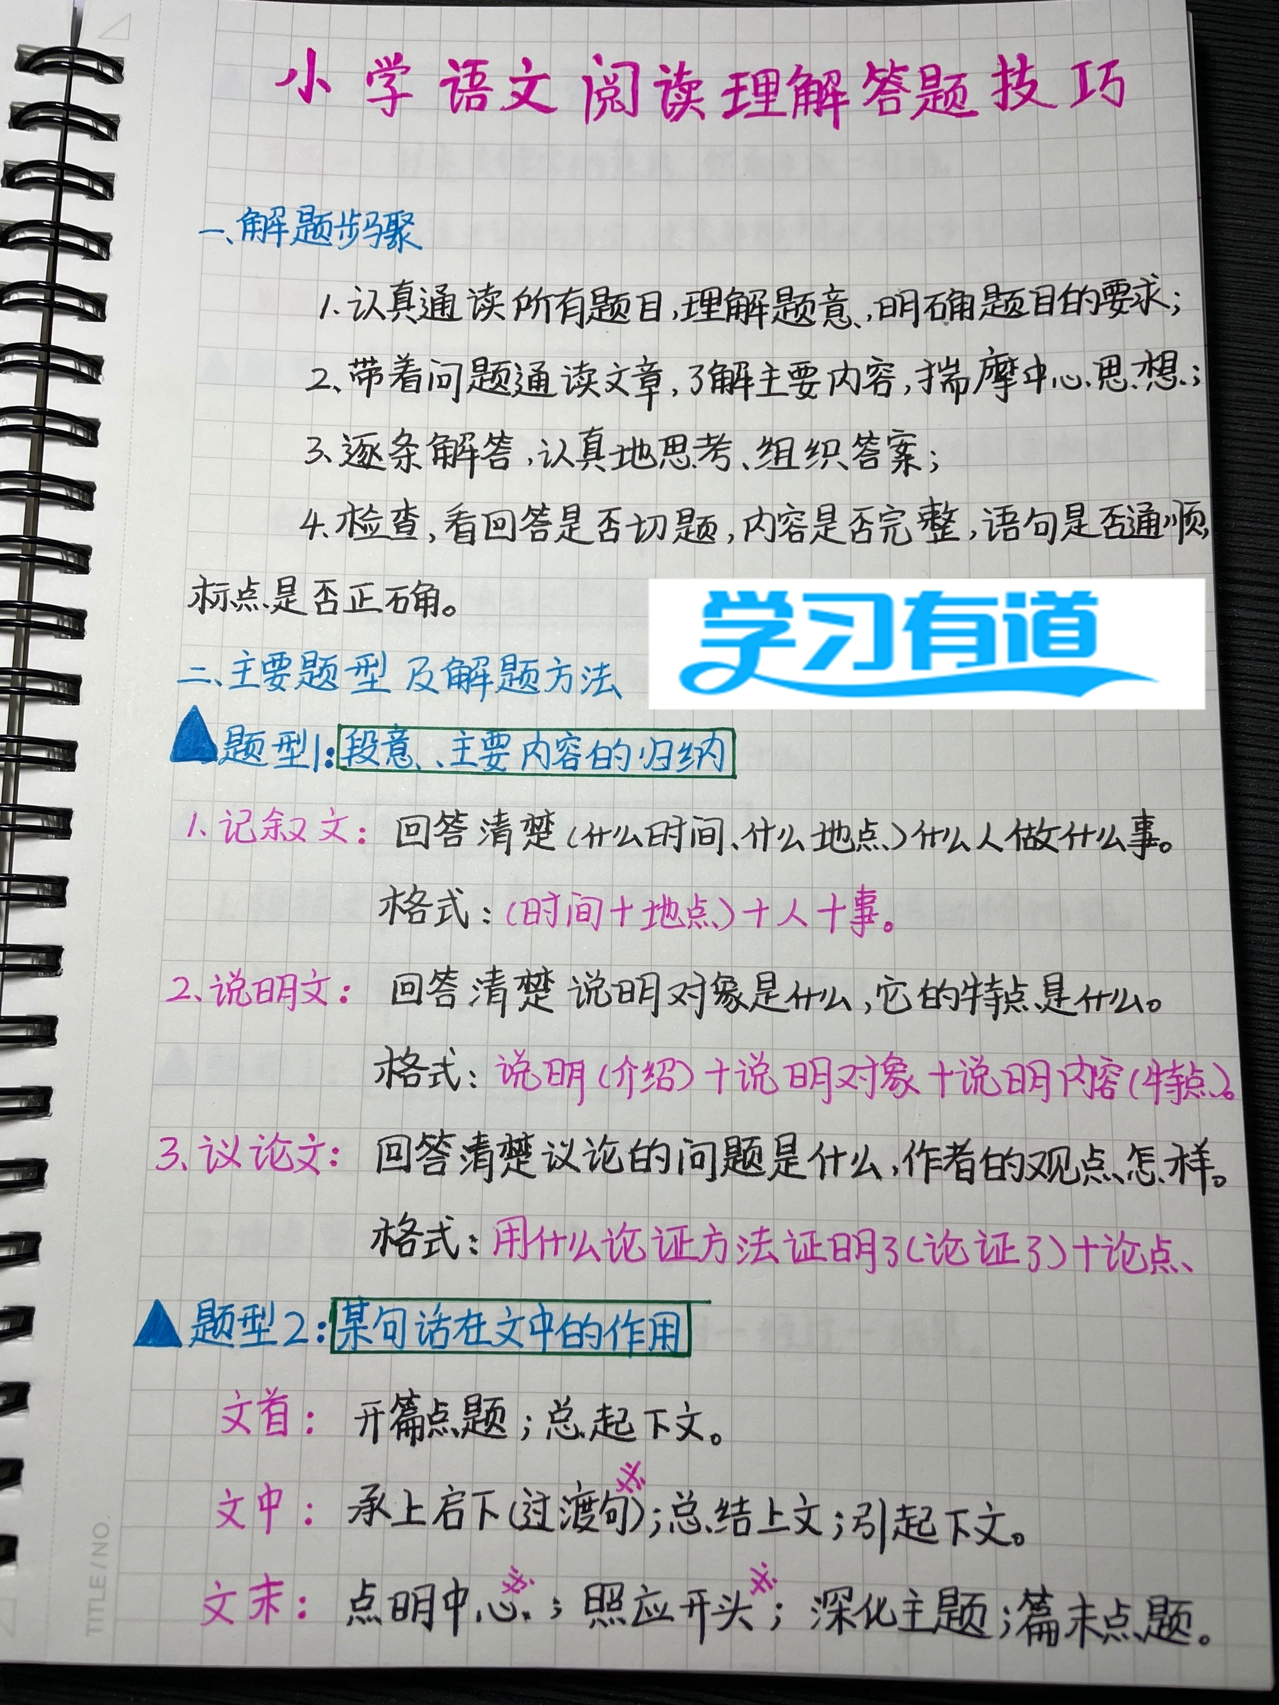 小学语文阅读理解答题技巧
一、解题步骤
1.认真通读所有题目,理解题意,明确题目的要求;
2、带着问题通读文章,了解主要内容,揣摩中心思想;
3、逐条解答,认真地思考、组织答案;
4.检查,看回答是否切题,内容是否完整,语句是否通顺,
标点是否正确。
学习有道
二、主要题型及解题方法
▲题型1:段意、主要内容的归纳
1、记叙文:回答清楚(什么时间、什么地点)什么人做什么事。
格式:(时间+地点)+人+事。
2、说明文:回答清楚说明对象是什么,它的特点是什么。
格式:说明(介绍)+说明对象+说明内容(特点)。
3、议论文:回答清楚议论的问题是什么,作者的观点怎样。
格式:用什么论证方法证明了(论证了)+论点、
▲题型2:某句话在文中的作用
文首:开篇点题;总起下文。
文中:承上启下(过渡句);总结上文;引起下文。
文末:点明中心;照应开头;深化主题;篇末点题。
TITLE/NO.